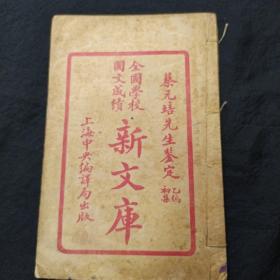 蔡元培先生鉴定
乙编
初集
全國學校
國文成績
新文庫
上海中央編譯局出版